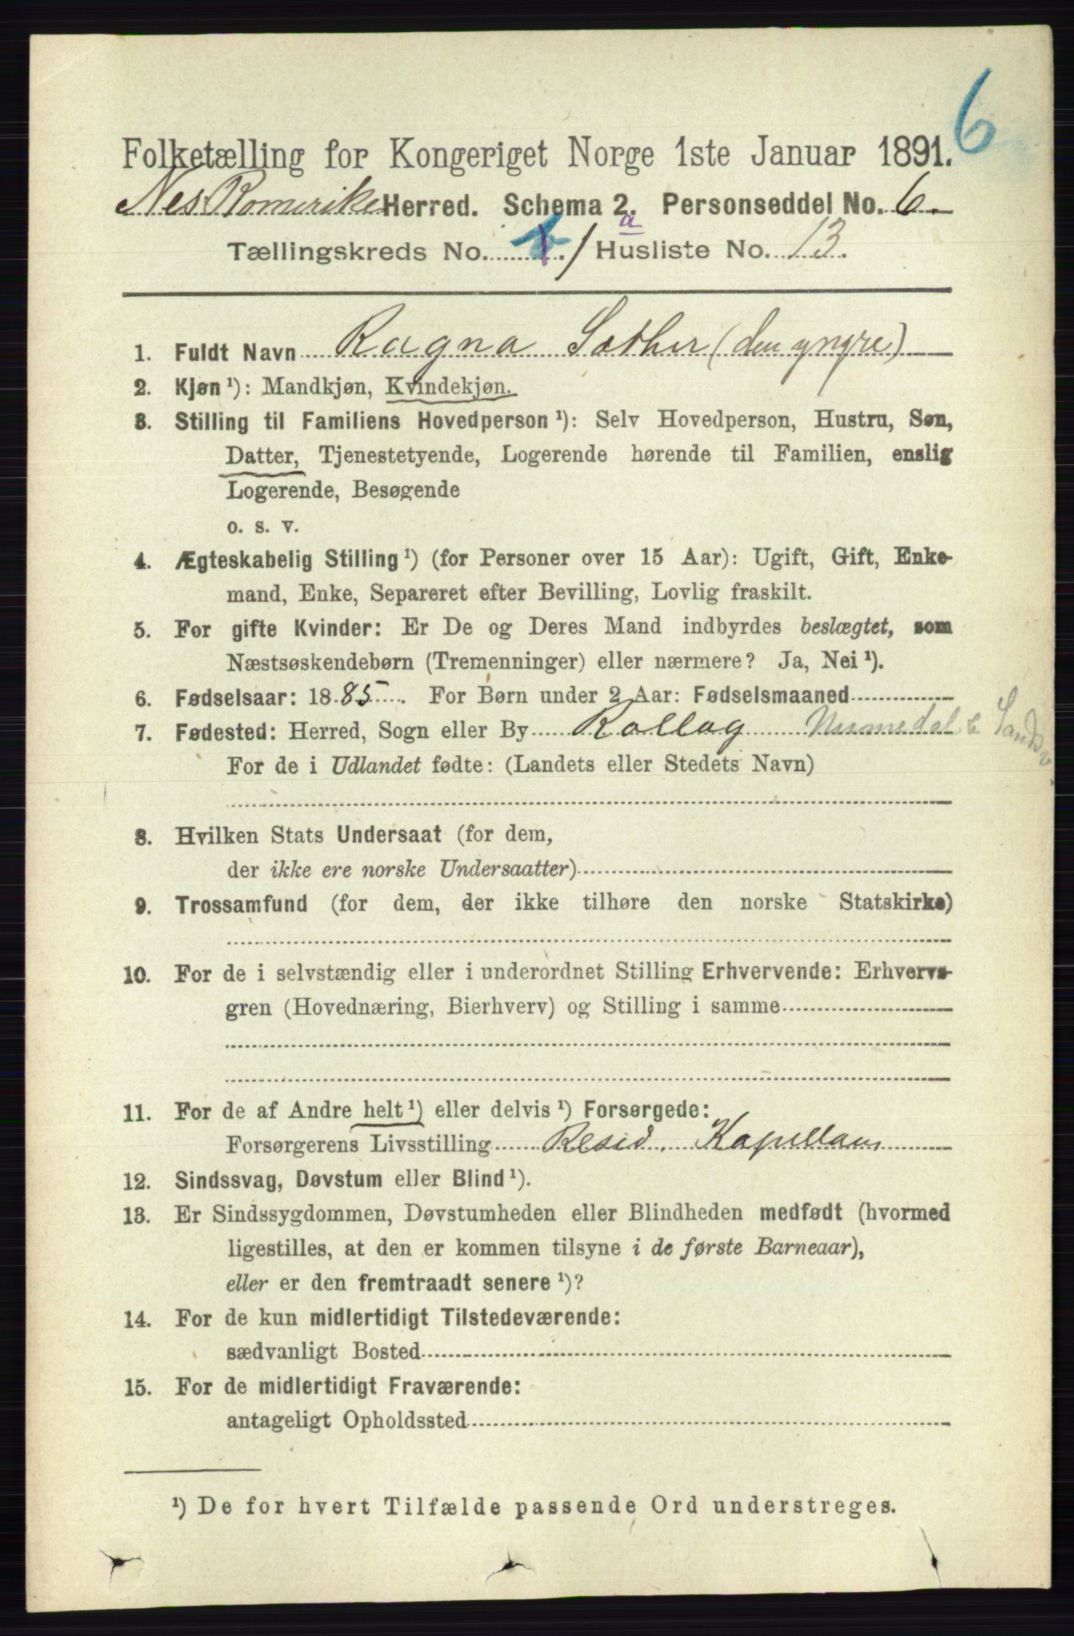 6
Folketælling for Kongeriget Norge 1ste Januar 1891.
Nes Romerike Herred. Schema 2. Personseddel No. 6.
a
Tællingskreds No. 1. / Husliste No. 13.
1. Fuldt Navn Ragna Sæther (den yngre)
2. Kjøn ¹): Mandkjøn, Kvindekjøn.
3. Stilling til Familiens Hovedperson ¹): Selv Hovedperson, Hustru, Søn,
Datter, Tjenestetyende, Logerende hørende til Familien, enslig
Logerende, Besøgende
o. s. v.
4. Ægteskabelig Stilling ¹) (for Personer over 15 Aar): Ugift, Gift, Enke-
mand, Enke, Separeret efter Bevilling, Lovlig fraskilt.
5. For gifte Kvinder: Er De og Deres Mand indbyrdes beslægtet, som
Næstsøskendebørn (Tremenninger) eller nærmere? Ja, Nei ¹).
6. Fødselsaar: 1885. For Børn under 2 Aar: Fødselsmaaned
7. Fødested: Herred, Sogn eller By Rollag Numedal &
For de i Udlandet fødte: (Landets eller Stedets Navn)
8. Hvilken Stats Undersaat (for dem,
der ikke ere norske Undersaatter)
9. Trossamfund (for dem, der ikke tilhøre den norske Statskirke)
10. For de i selvstændig eller i underordnet Stilling Erhvervende: Erhvervs-
gren (Hovednæring, Bierhverv) og Stilling i samme
11. For de af Andre helt ¹) eller delvis ¹) Forsørgede:
Forsørgerens Livsstilling Resid. Kapellan
12. Sindssvag, Døvstum eller Blind ¹).
13. Er Sindssygdommen, Døvstumheden eller Blindheden medfødt (hvormed
ligestilles, at den er kommen tilsyne i de første Barneaar),
eller er den fremtraadt senere ¹)?
14. For de kun midlertidigt Tilstedeværende:
sædvanligt Bosted
15. For de midlertidigt Fraværende:
antageligt Opholdssted
¹) De for hvert Tilfælde passende Ord understreges.